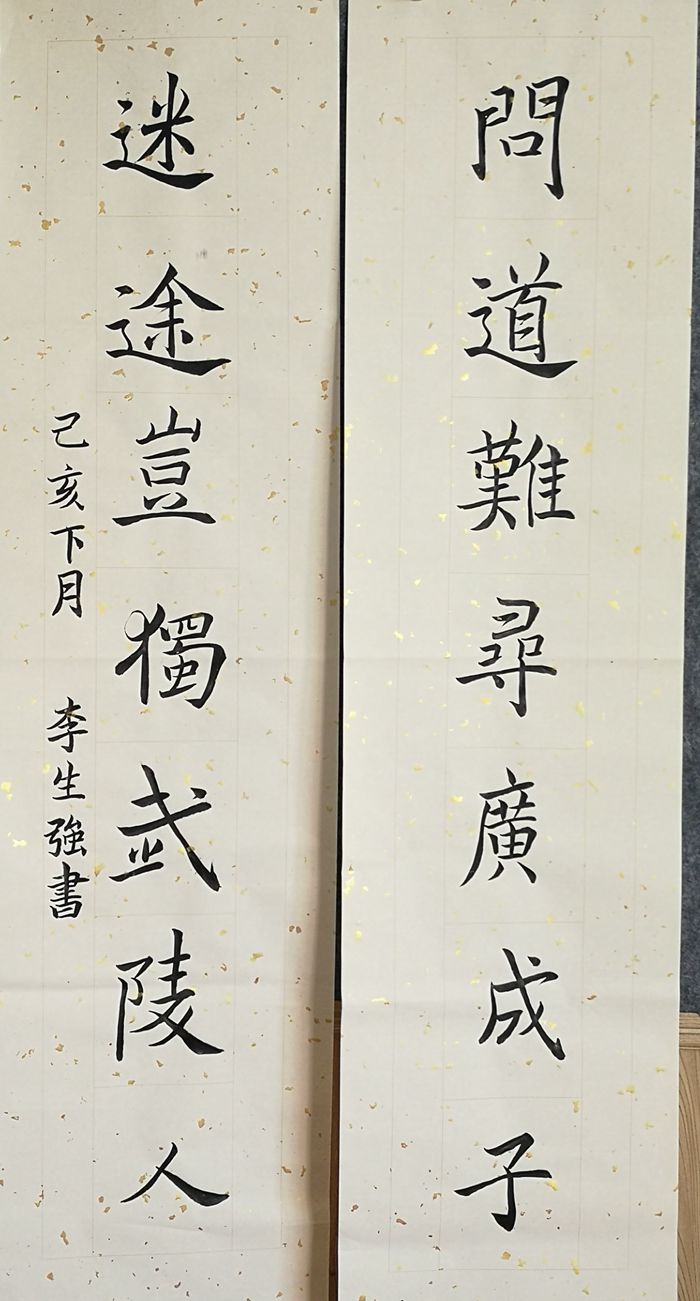 問道難尋廣成子
迷途豈獨武陵人
己亥下月 李生強書